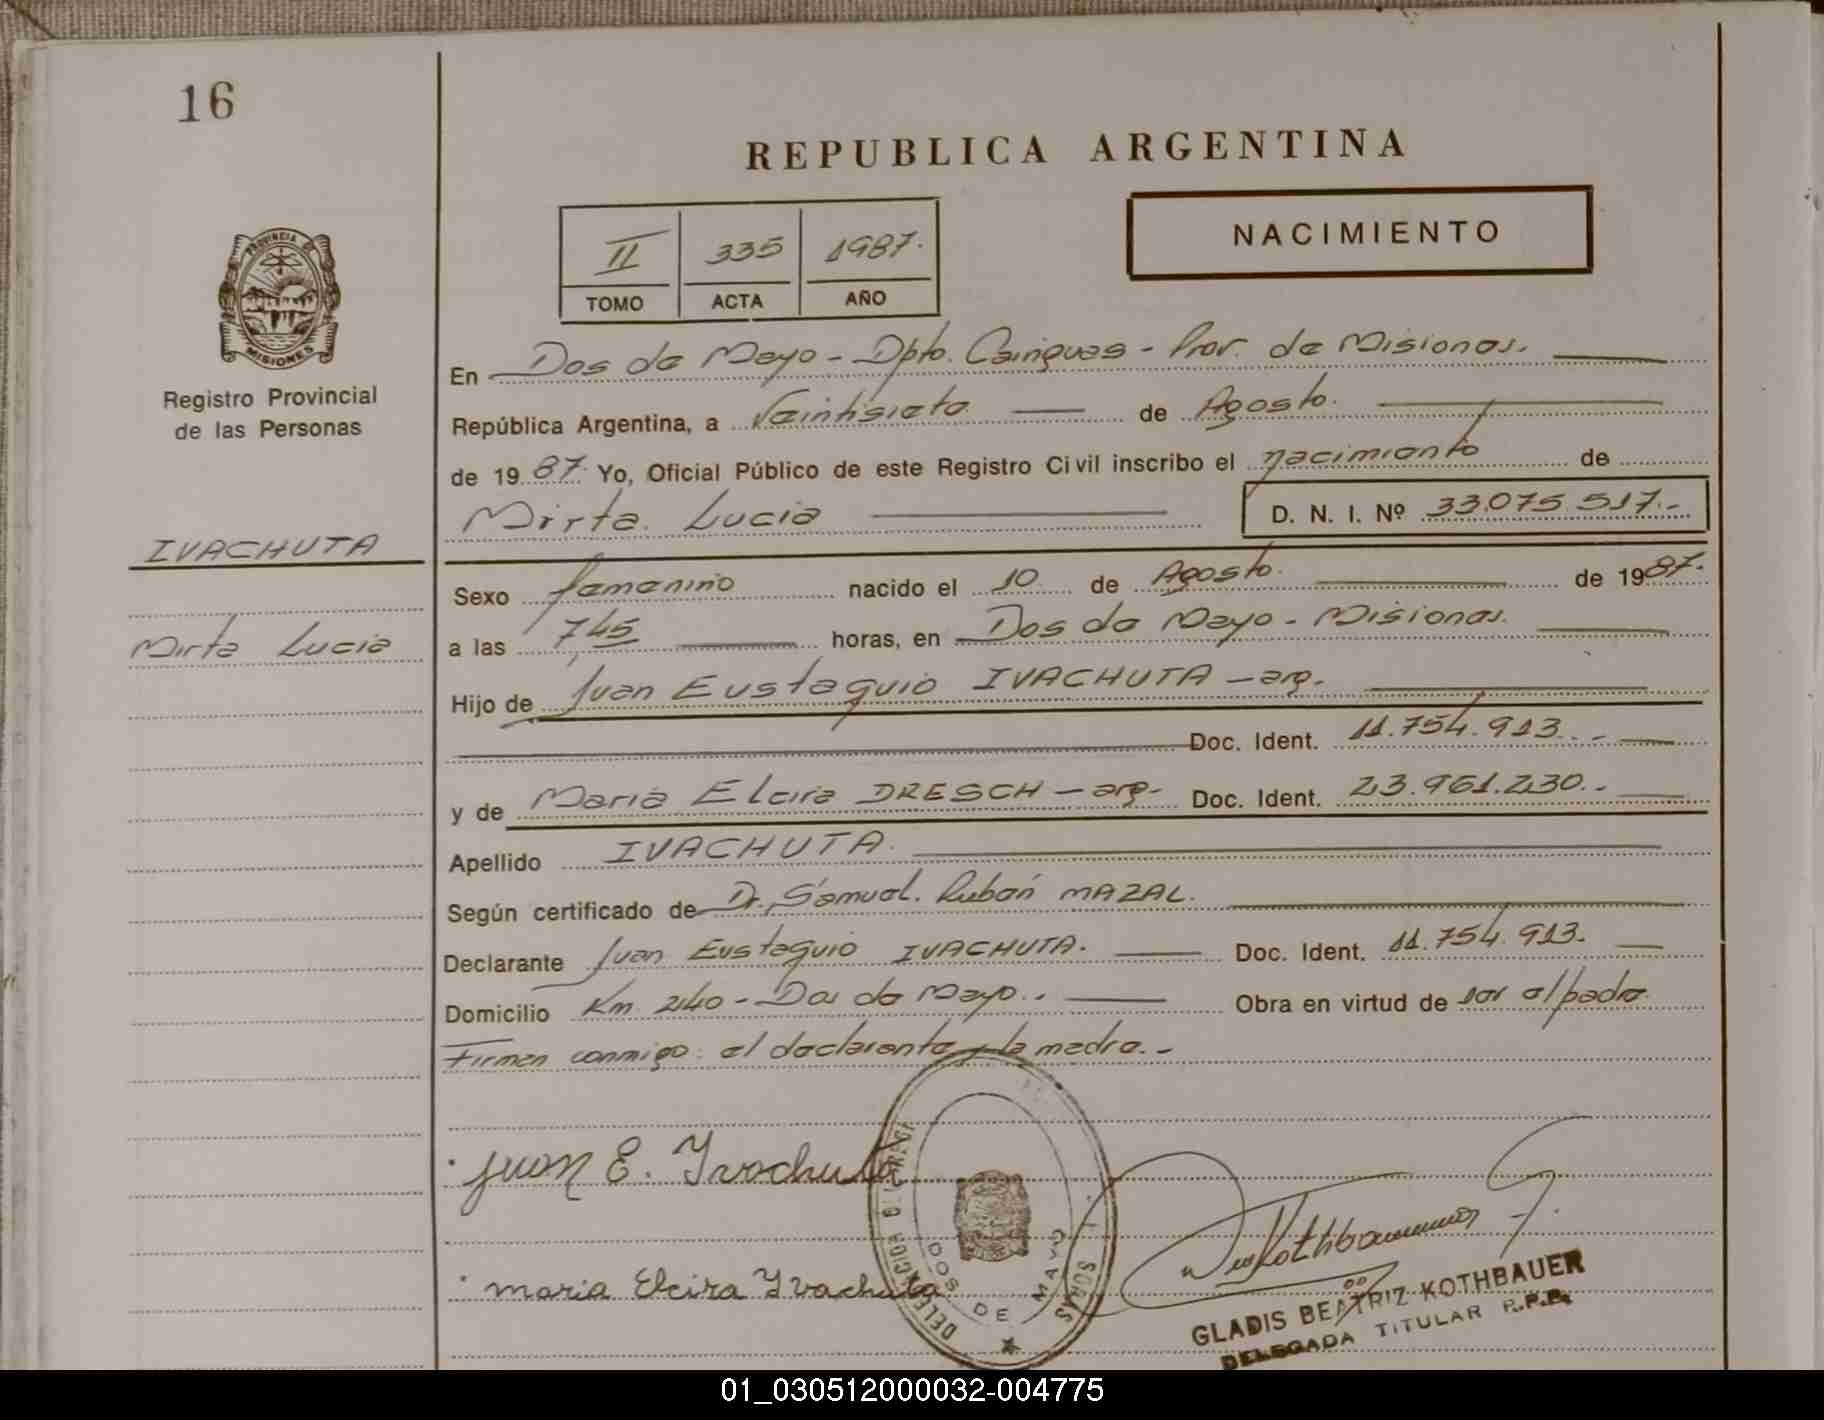 16
REPUBLICA ARGENTINA
NACIMIENTO
II 335 1987.
TOMO ACTA AÑO
PROVINCIA DE
MISIONES
Registro Provincial
de las Personas
IVACHUTA
Mirta Lucia
En Dos de Mayo - Dpto. Cainguas - Prov. de Misiones.
República Argentina, a Veintisiete de Agosto.
de 1987. Yo, Oficial Público de este Registro Civil inscribo el nacimiento de
Mirta Lucia D. N. I. Nº 33.075.517.-
Sexo femenino nacido el 10 de Agosto. de 1987.
a las 745 horas, en Dos de Mayo - Misiones.
Hijo de Juan Eustaquio IVACHUTA - arg.
Doc. Ident. 11.754.913.-
y de Maria Elcira DRESCH - arg. Doc. Ident. 23.961.230.-
Apellido IVACHUTA.
Según certificado de Dr. Samuel. Rubén MAZAL.
Declarante Juan Eustaquio IVACHUTA. Doc. Ident. 11.754.913.
Domicilio Km. 240 - Dos de Mayo.- Obra en virtud de ser el padre.
Firman conmigo: el declarante y la madre.-
Juan E. Ivachuta
maria Elcira Ivachuta
DOS DE MAYO
GLADIS BEATRIZ KOTHBAUER
DELEGADA TITULAR R.P.P.
01_030512000032-004775